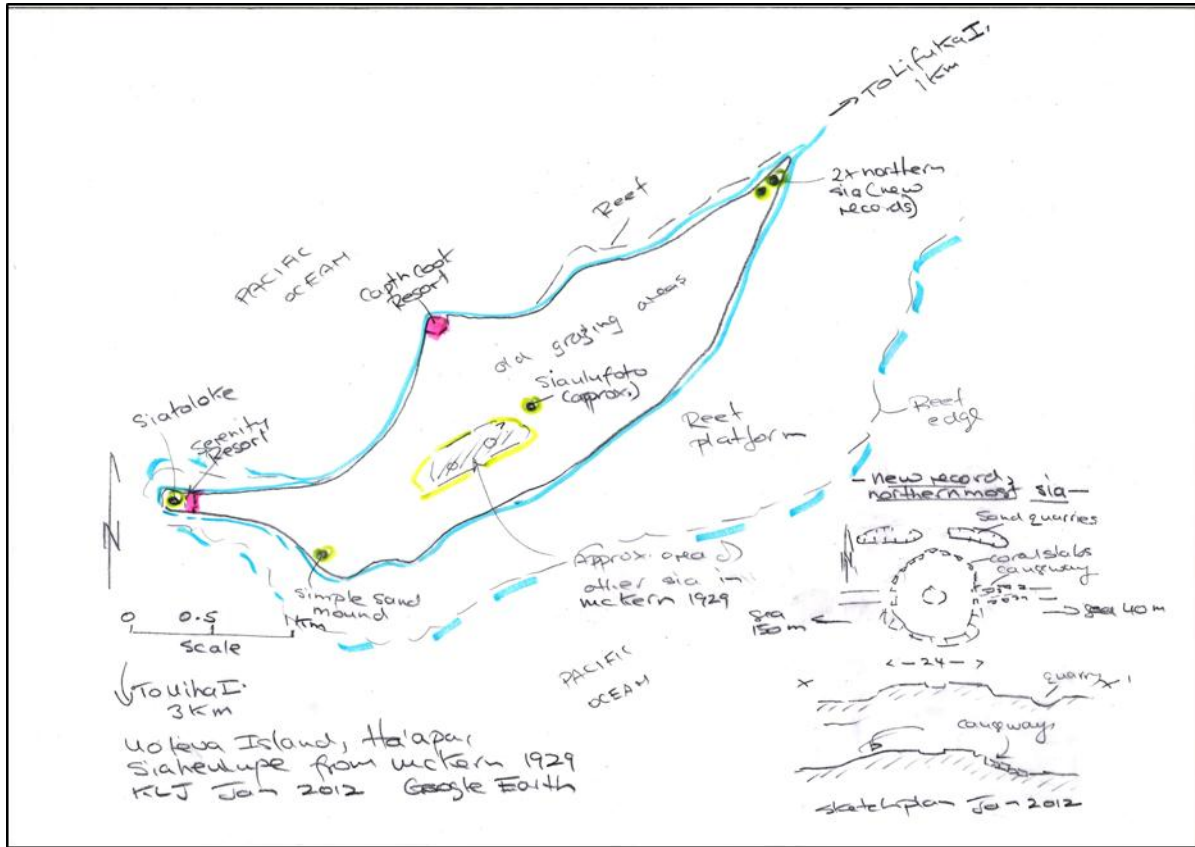 To Lifuka I.
1 Km
2x northern
sia (new
records)
Reef
PACIFIC
OCEAM
Captn Cook
Resort
old grazing areas
Siaulufoto
(approx.)
Siatoloke
Serenity
Resort
Reef
platform
Reef
edge
N
simple sand
mound
Approx. area of
other sia in
McKern 1929
0 0.5 1 Km
Scale
PACIFIC
OCEAM
To Uiha I.
3 Km
Uoleva Island, Ha'apai,
from McKern 1929
KLJ Jan 2012 Google Earth
- new record,
northernmost sia -
N
Sand quarries
coral slabs
causeway
sea
150 m
sea 40 m
< - 24 - >
x
quarry
x'
causways
sketch plan Jan 2012